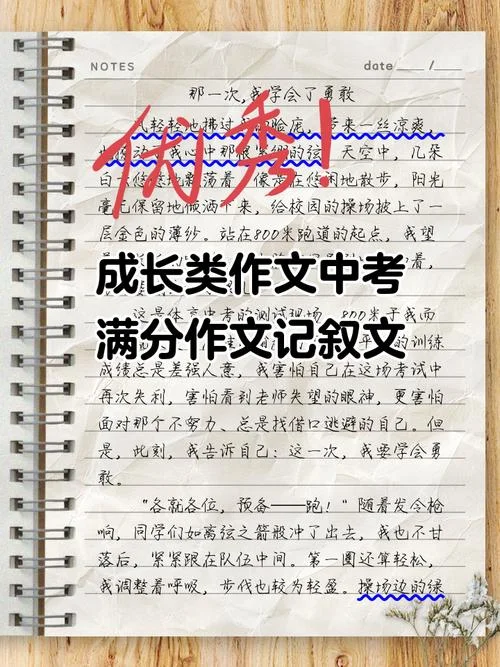 NOTES date /
那一次,我学会了勇敢
风轻轻地拂过我的脸庞，带来一丝凉爽，
我心中那根紧绷的弦。天空中，几朵
白云悠悠地飘荡着，像是在悠闲地散步，阳光
毫无保留地倾洒下来，给校园的操场披上了一
层金色的薄纱。站在800米跑道的起点，我望
着，
优秀!
成长类作文中考
满分作文记叙文
这是体育中考的测试现场，800米于我而
平 的训练
成绩总是差强人意，我害怕自己在这场考试中
再次失利，害怕看到老师失望的眼神，更害怕
面对那个不努力、总是找借口逃避的自己。但
是，此刻，我告诉自己：这一次，我要学会勇
敢。
“各就各位，预备——跑！”随着发令枪
响，同学们如离弦之箭般冲了出去，我也不甘
落后，紧紧跟在队伍中间。第一圈还算轻松，
我调整着呼吸，步伐也较为轻盈。操场边的绿